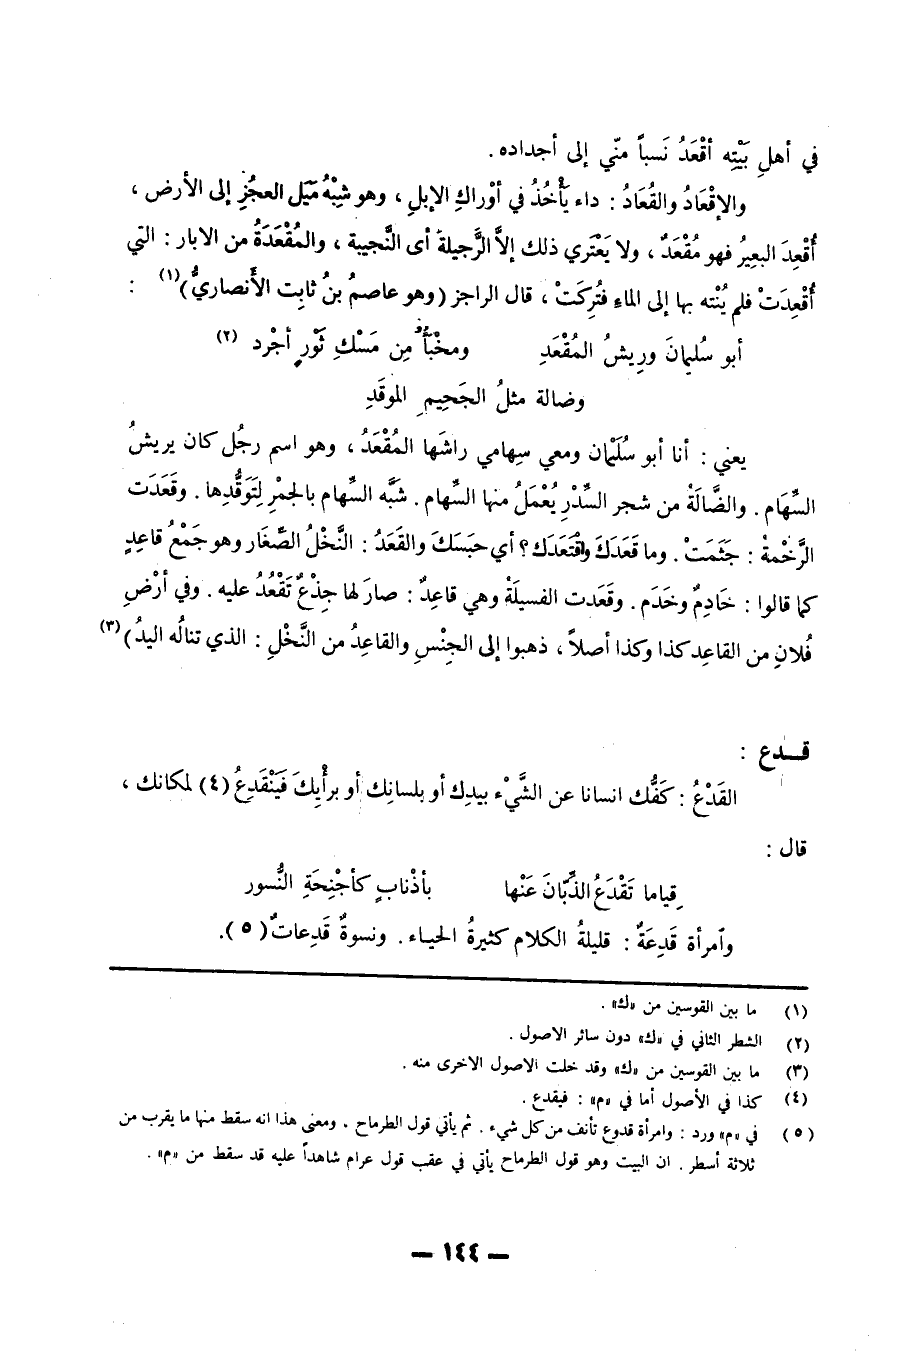 في أهلِ بَيْتِه أقْعَدُ نَسباً منّي إلى أجداده .
والإقْعَادُ والقُعَادُ : داء يَأْخُذُ في أوْراكِ الإبلِ ، وهو شِبْهُ مَيَل العجُزِ إلى الأرض ،
أُقْعِدَ البعيرُ فهو مُقْعَدٌ ، ولا يَعْتري ذلك إلاَّ الرَّجيلةَ أى النَّجيبة ، والمُقْعَدَةُ من الابار : التي
أُقْعِدَتْ فلم يُنْته بها إلى الماءِ فتُرِكَتْ ، قال الراجز (وهو عاصمُ بنُ ثابِت الأَنصاريُّ)(١) :
أبو سُليمانَ ورِيشُ المُقْعَدِ ومخْبَأٌ مِن مَسْكِ ثَوْرٍ أجْرد (٢)
وضالة مثلُ الجَحِيمِ الموقَدِ
يعني : أنا أبو سُلَيْمان ومعي سِهامي راشَها المُقْعَدُ ، وهو اسم رجُل كان يريشُ
السِّهَام . والضَّالَةْ من شجر السِّدْرِ يُعْمَلُ منها السِّهام . شَبَّه السِّهام بالجمْرِ لِتَوَقُّدِها . وقَعَدَت
الرَّخْمةُ : جَثَمَتْ . وما قَعَدَكَ واقْتَعَدَك؟ أي حبَسَكَ والقَعَدُ : النَّخْلُ الصِّغَار وهو جَمْعُ قاعِدٍ
كما قالوا : خَادِمٌ وخَدَم . وقَعَدت الفسيلَةْ وهي قاعِدٌ : صارَ لها جِذْعٌ تَقْعُدُ عليه . وفي أرْضِ
فُلانٍ من القاعِد كذا وكذا أصلاً ، ذهبوا إلى الجِنْسِ والقاعِدُ من النَّخْلِ : الذي تنالُه اليدُ )(٣)
قــدع :
القَدْعُ : كَفُّك انسانا عن الشَّيْء بيدِك أو بلسانِك أو برأْيِكَ فَيَنْقَدِعُ (٤) لمكانك ،
قال :
قِياما تَقْدَعُ الذِّبّانَ عَنْها بأذْنابٍ كأجْنِحَةِ النُّسور
وٱمرأة قَدِعَةٌ : قليلةُ الكلام كثيرةُ الحياء . ونسوةٌ قَدِعاتٌ(٥).
(١) ما بين القوسين من «ك» .
(٢) الشطر الثاني في «ك» دون سائر الاصول .
(٣) ما بين القوسين من «ك» وقد خلت الاصول الاخرى منه .
(٤) كذا في الأصول أما في «م» : فيقدع .
(٥) في «م» ورد : وامرأة قدوع تأنف من كل شيء . ثم يأتي قول الطرماح ، ومعنى هذا انه سقط منها ما يقرب من
ثلاثة أسطر . ان البيت وهو قول الطرماح يأتي في عقب قول عرام شاهداً عليه قد سقط من «م» .
— ١٤٤ —